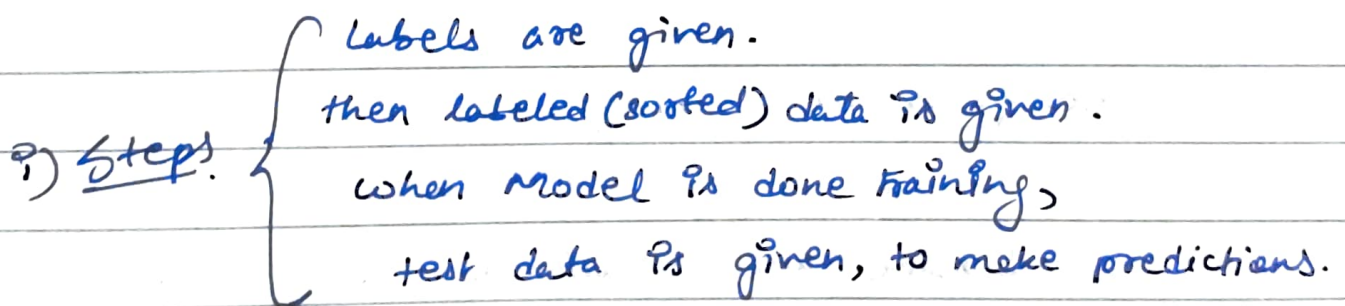 Labels are given.
then labeled (sorted) data is given.
i) Steps.
when Model is done training,
test data is given, to make predictions.